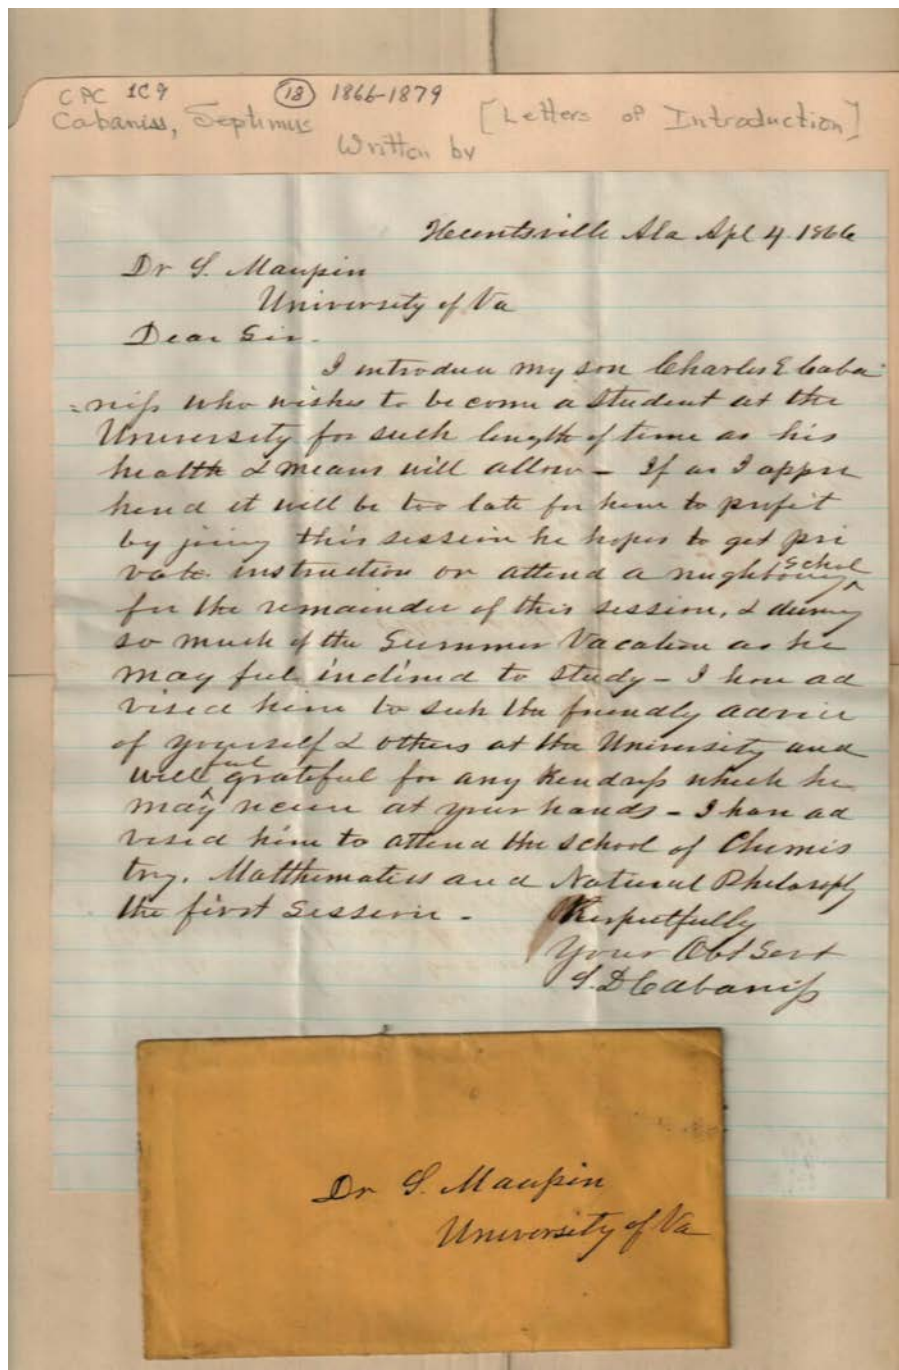 CPC 1C9 (18) 1866-1879
Cabaniss, Septimus [Letters of Introduction]
Written by
Huntsville Ala Apl 4. 1866
Dr S. Maupin
University of Va
Dear Sir.
I introduce my son Charles E Caba
=niss who wishes to become a student at the
University for such length of time as his
health & means will allow – If as I appre
hend it will be too late for him to profit
by joining this session he hopes to get pri
vate instruction or attend a neighboring school
for the remainder of this session, & during
so much of the Summer Vacation as he
may feel inclined to study – I have ad
vised him to seek the friendly advice
of yourself & others at the University and
will feel grateful for any kindness which he
may receive at your hands – I have ad
vised him to attend the school of Chemis
try. Matthematics and Natural Philosophy
the first Session –
Respectfully
Your Obt Servt
S. D Cabaniss
Dr S. Maupin
University of Va